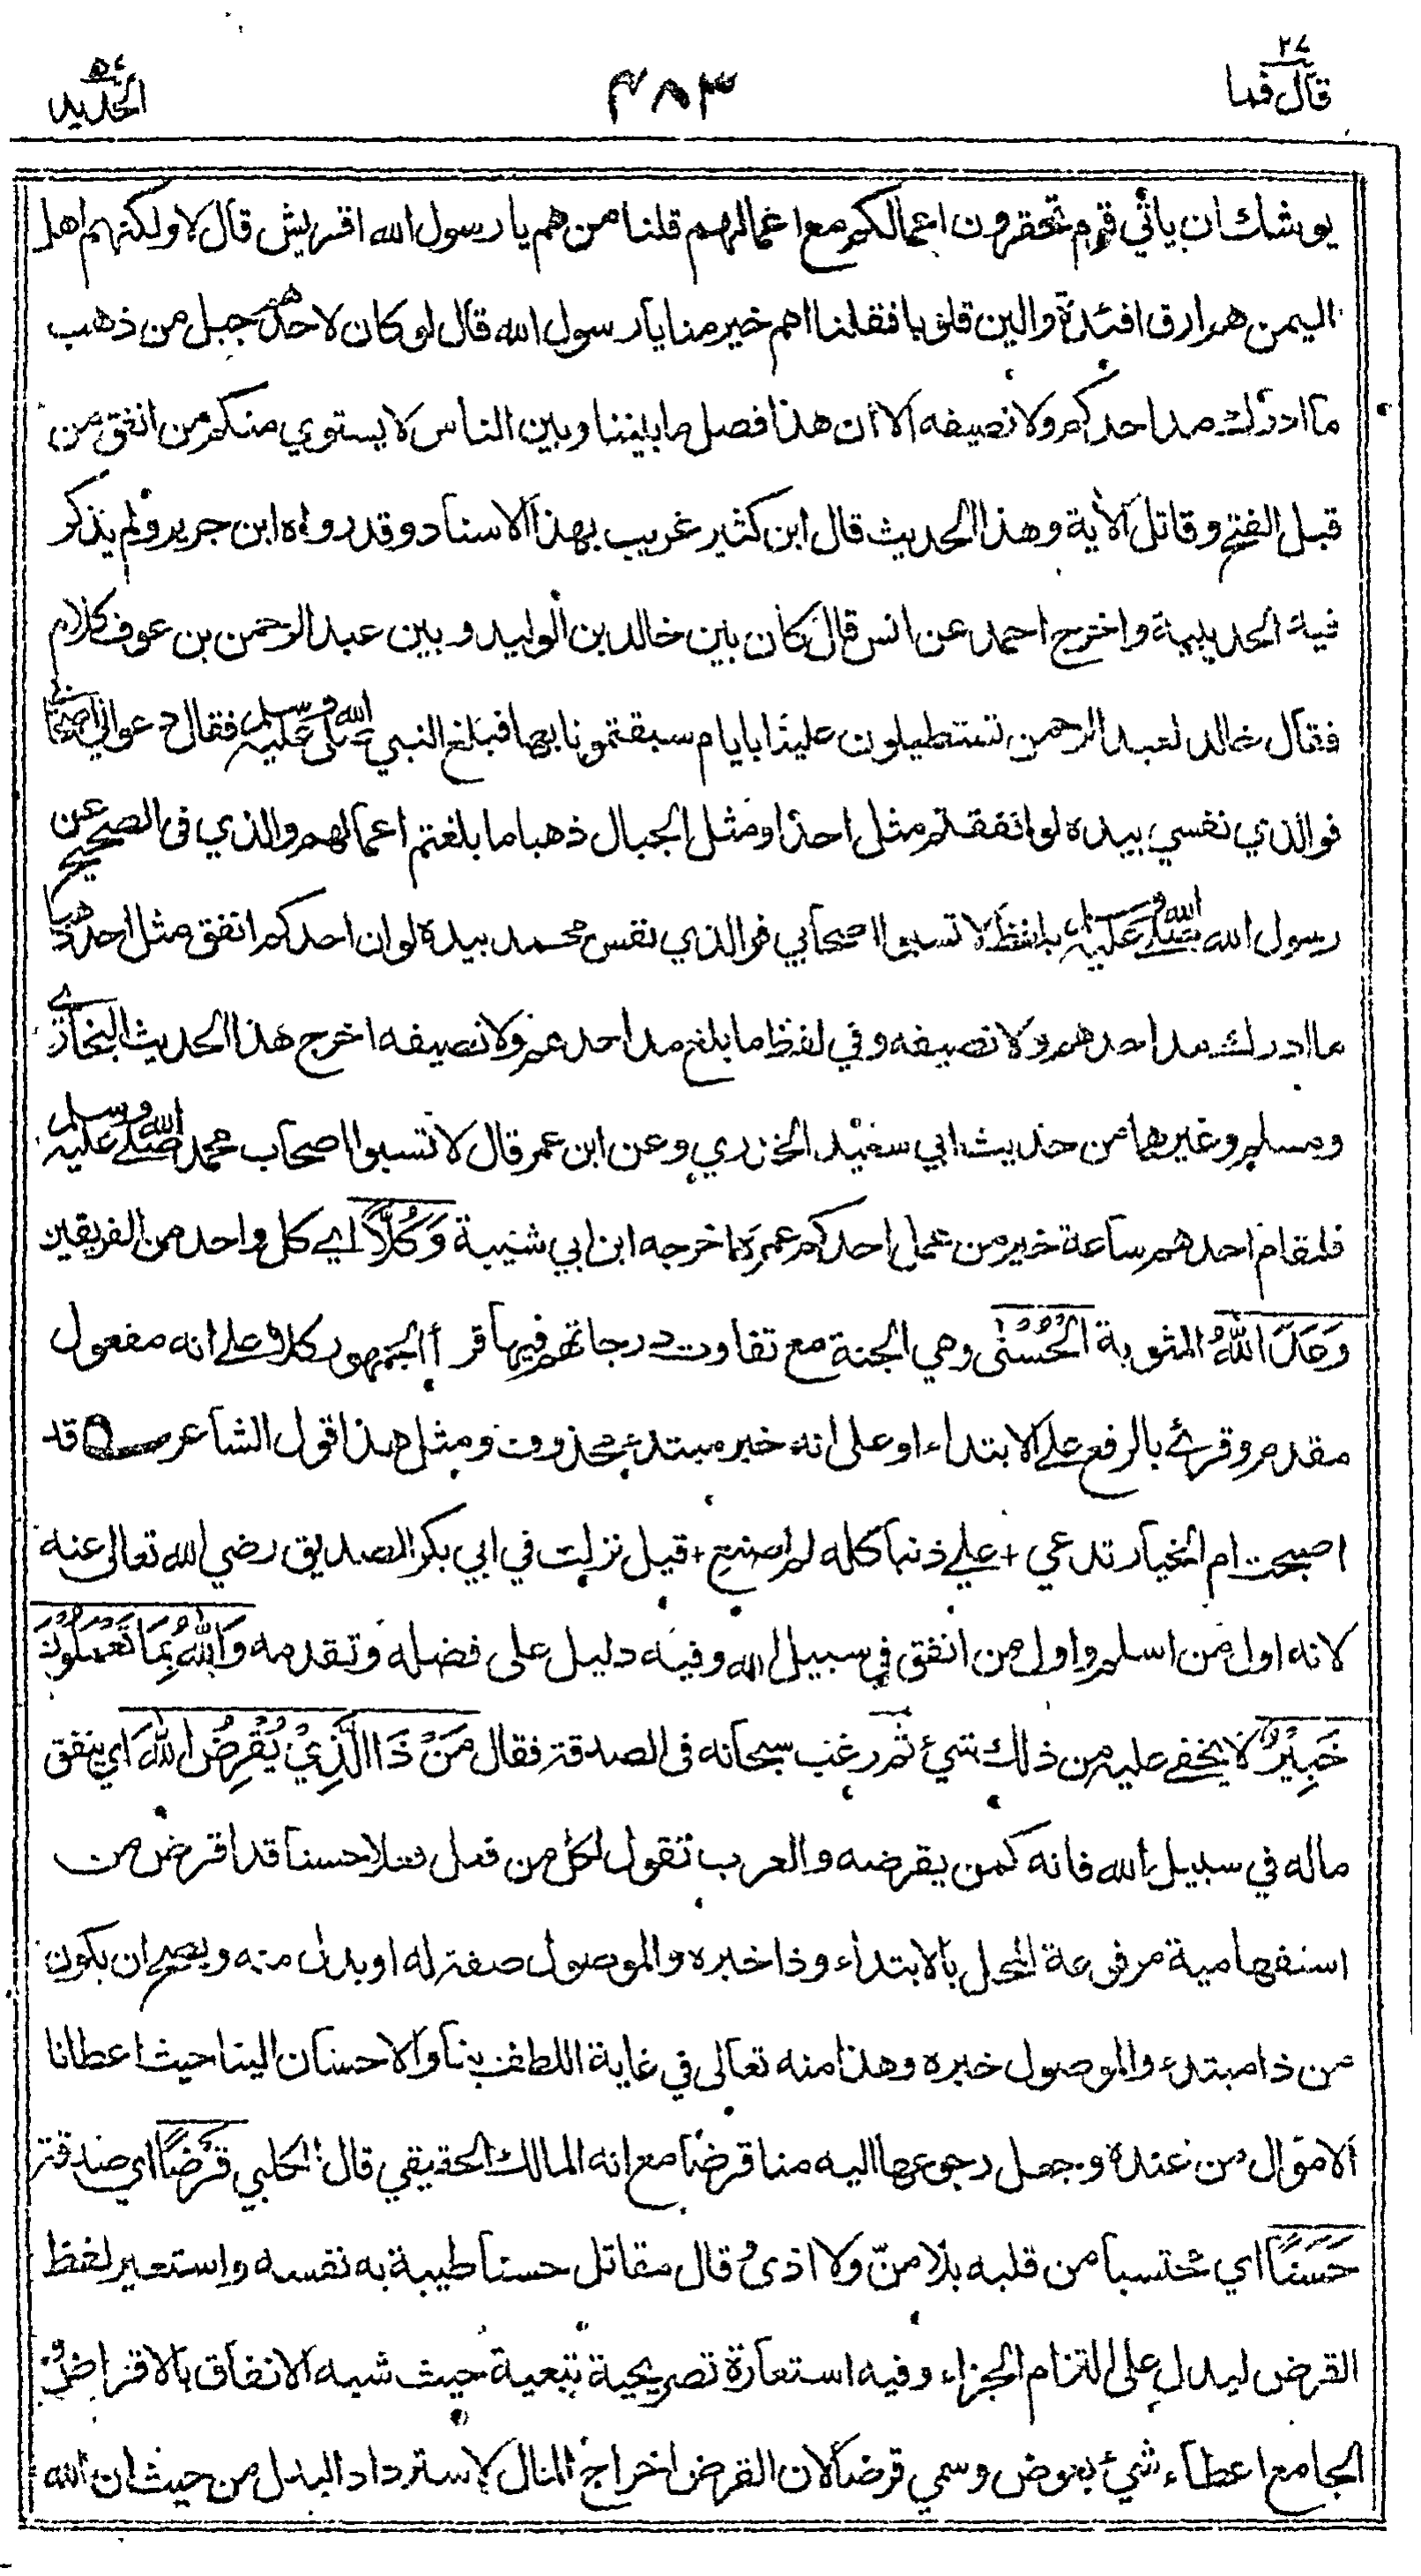 قال فما ٢٧
٤٨٣
الحديد ٥٧
يوشك ان يأتي قوم تحقرون اعمالكم مع اعمالهم قلنا من هم يا رسول الله اقريش قال لا ولكنهم اهل
اليمن هم ارق افئدة والين قلوبا فقلنا اهم خير منا يا رسول الله قال لو كان لاحدهم جبل من ذهب
ما ادرك مد احدكم ولا نصيفه الا ان هذا فصل ما بيننا وبين الناس لا يستوي منكم من انفق من
قبل الفتح وقاتل الأية وهذا الحديث قال ابن كثير غريب بهذا الاسناد وقد رواه ابن جرير ولم يذكر
فيه الحديبية واخرج احمد عن انس قال كان بين خالد بن الوليد وبين عبد الرحمن بن عوف كلام
فقال خالد لعبد الرحمن تستطيلون علينا بايام سبقتمونا بها فبلغ النبي صلى الله عليه وسلم فقال دعوا لي اصحابي
فوالذي نفسي بيده لو انفقتم مثل احد او مثل الجبال ذهبا ما بلغتم اعمالهم والذي فى الصحيح عن
رسول الله صلى الله عليه وسلم بلفظ لا تسبوا اصحابي فوالذي نفس محمد بيده لو ان احدكم انفق مثل احد ذهبا
ما ادرك مد احدهم ولا نصيفه وفي لفظ ما بلغ مد احدهم ولا نصيفه اخرج هذا الحديث البخاري
ومسلم وغيرهما من حديث ابي سعيد الخدري وعن ابن عمر قال لا تسبوا اصحاب محمد صلى الله عليه وسلم
فلمقام احدهم ساعة خير من عمل احدكم عمره اخرجه ابن ابي شيبة وَكُلًّا اي كل واحد من الفريقين
وَعَدَ اللّٰهُ المثوبة الْحُسْنٰى وهي الجنة مع تفاوت درجاتهم فيها قرأ الجمهور كلا على انه مفعول
مقدم وقرئ بالرفع على الابتداء او على انه خبر مبتدء محذوف ومثل هذا قول الشاعر ے قد
اصبحت ام الخيار تدعي + علي ذنبا كله لم اصنع + قيل نزلت في ابي بكر الصديق رضي الله تعالى عنه
لانه اول من اسلم واول من انفق في سبيل الله وفيه دليل على فضله وتقدمه وَاللّٰهُ بِمَا تَعْمَلُوْنَ
خَبِيْرٌ لا يخفى عليه من ذلك شيء ثم رغب سبحانه فى الصدقة فقال مَنْ ذَا الَّذِيْ يُقْرِضُ اللّٰهَ اي ينفق
ماله في سبيل الله فانه كمن يقرضه والعرب تقول لكل من فعل فعلا حسنا قد اقرض من
استفهامية مرفوعة المحل بالابتداء وذا خبره والموصول صفة له او بدل منه ويصح ان يكون
من ذا مبتدء والموصول خبره وهذا منه تعالى في غاية اللطف بنا والاحسان الينا حيث اعطانا
الاموال من عنده وجعل رجوعها اليه منا قرضا مع انه المالك الحقيقي قال الحلبي قَرْضًا اي صدقة
حَسَنًا اي محتسبا من قلبه بلا منّ ولا اذى قال مقاتل حسنا طيبة به نفسه واستعير لفظ
القرض ليدل على التزام الجزاء وفيه استعارة تصريحية تبعية حيث شبه الانفاق بالاقراض و
الجامع اعطاء شيء بعوض وسمي قرضا لان القرض اخراج المال لاسترداد البدل من حيث ان الله